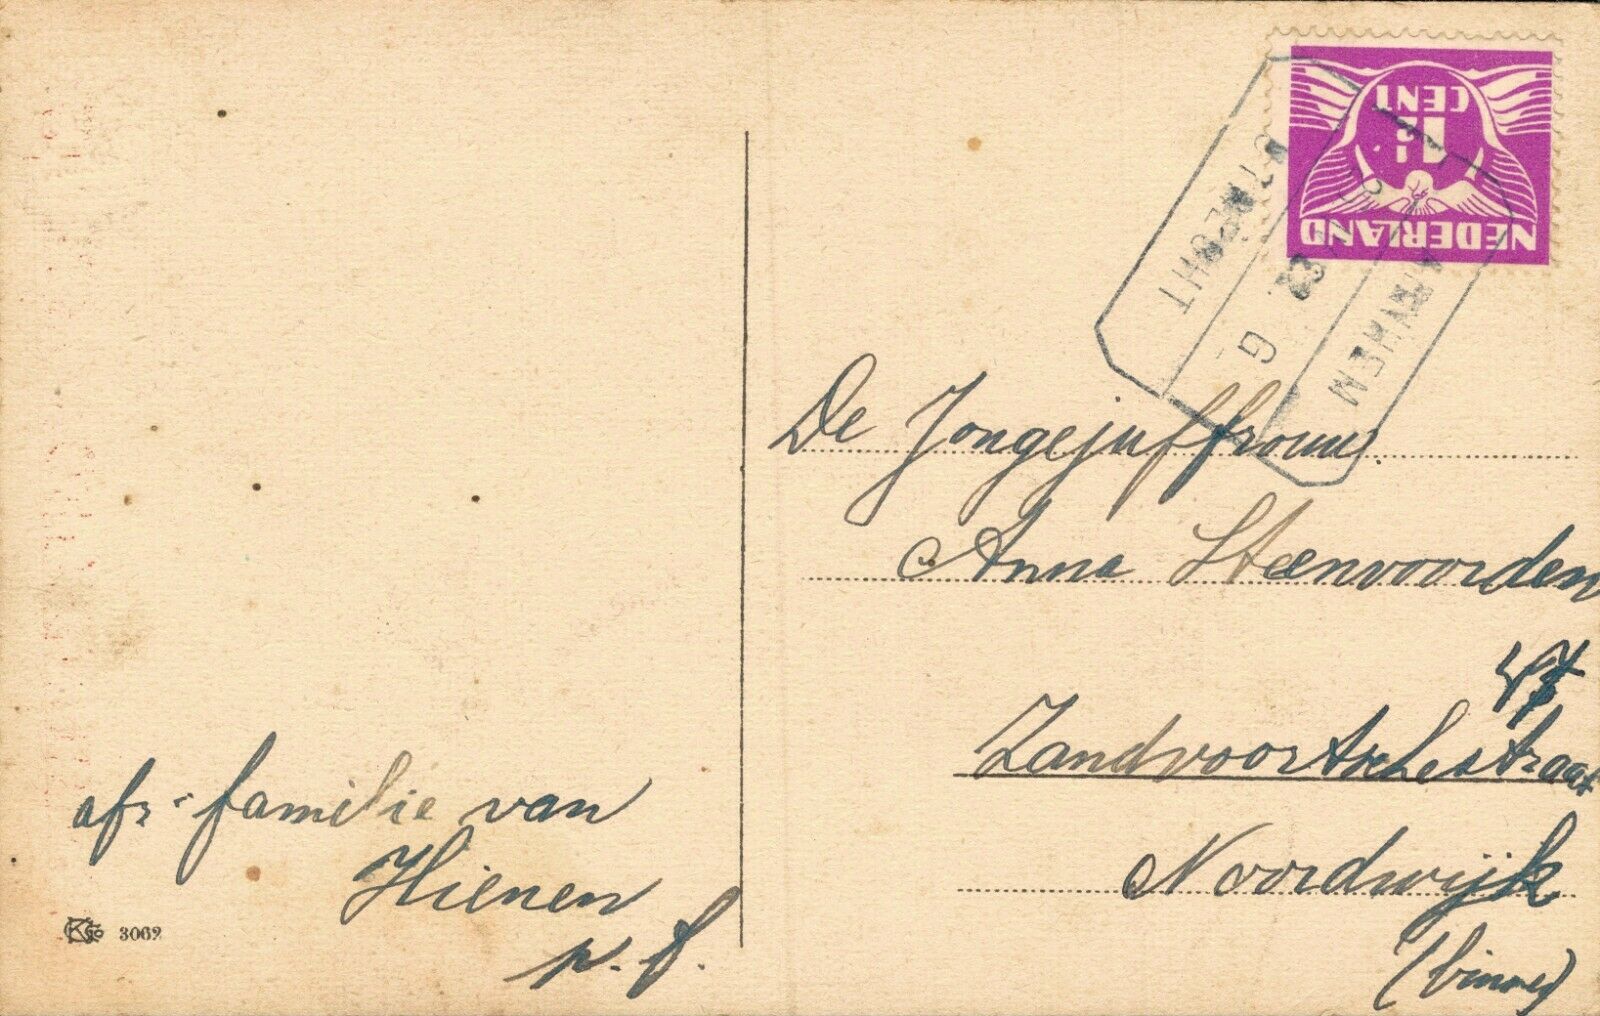 afz: familie van
Hienen
p. f.
KCo 3062
NEDERLAND
1½
CENT
UTRECHT
G
ARNHEM
De Jongejuffrouw
Anna Steenvoorden
Zandvoortschestraat
Noordwijk
(binnen)